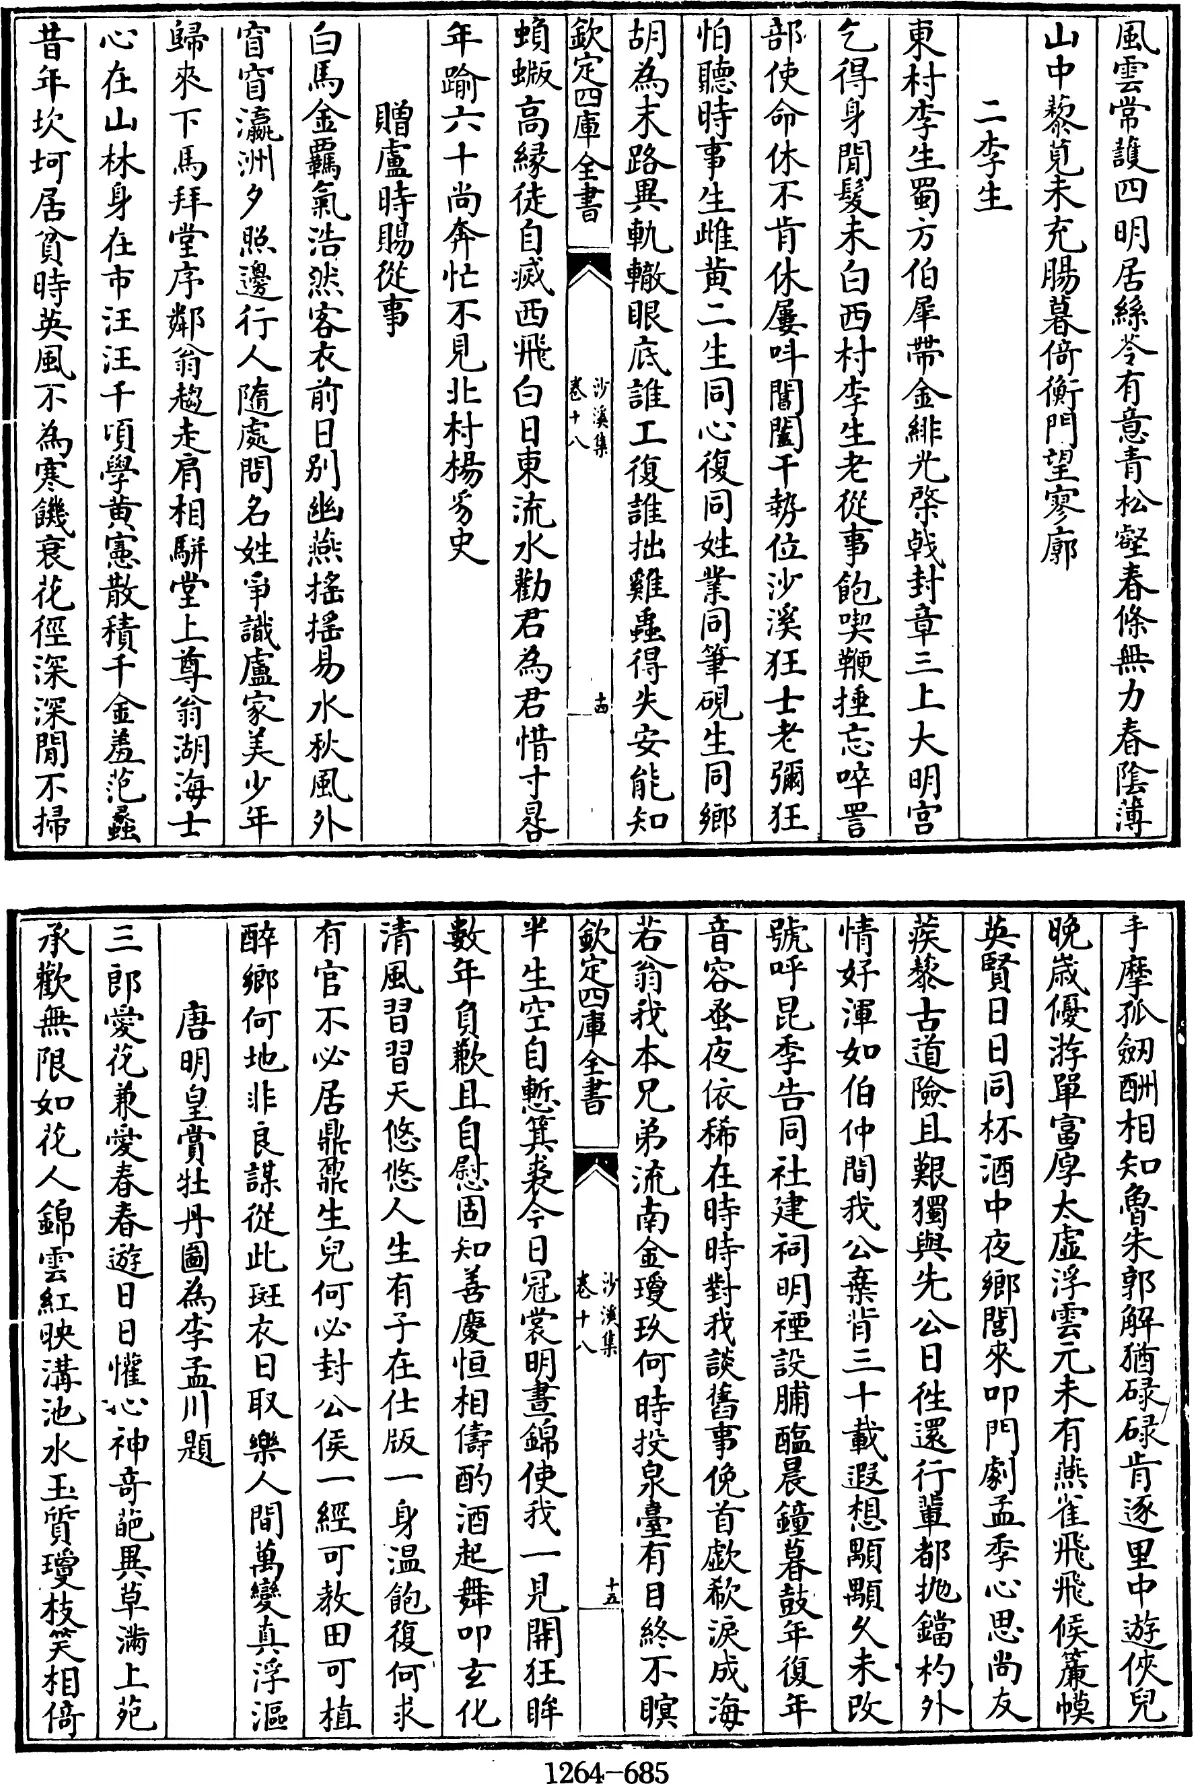 風雲常護四明居絲苓有意青松壑春條無力春陰薄
山中藜莧未充腸暮倚衡門望寥廓
二李生
東村李生蜀方伯犀帶金緋光棨戟封章三上大明宮
乞得身閒髮未白西村李生老從事飽喫鞭捶忘啐詈
部使命休不肯休屢呌閶闔干勢位沙溪狂士老彌狂
怕聽時事生雌黄二生同心復同姓業同筆硯生同鄉
胡為末路異軌轍眼底誰工復誰拙雞蟲得失安能知
欽定四庫全書
沙溪集
卷十八
十四
蝜蝂高緣徒自烕西飛白日東流水勸君為君惜寸晷
年踰六十尚奔忙不見北村楊豸史
贈盧時賜從事
白馬金羈氣浩然客衣前日别幽燕摇摇易水秋風外
窅窅瀛洲夕照邊行人隨處問名姓爭識盧家美少年
歸來下馬拜堂序鄰翁趨走肩相駢堂上尊翁湖海士
心在山林身在市汪汪千頃學黄憲散積千金羞范蠡
昔年坎坷居貧時英風不為寒饑衰花徑深深閒不掃
手摩孤劒酬相知魯朱郭解猶碌碌肯逐里中遊俠兒
晚歳優游單富厚太虚浮雲元未有燕雀飛飛候簾幙
英賢日日同杯酒中夜鄉閭來叩門劇孟季心思尚友
蒺藜古道險且艱獨與先公日徃還行輩都抛鐺杓外
情好渾如伯仲間我公棄背三十載遐想顒顒久未改
號呼昆季告同社建祠明禋設脯醢晨鐘暮鼓年復年
音容蚤夜依稀在時時對我談舊事俛首歔欷淚成海
若翁我本兄弟流南金瓊玖何時投泉臺有目終不瞑
欽定四庫全書
沙溪集
卷十八
十五
半生空自慙箕裘今日冠裳明晝錦使我一見開狂眸
數年負歉且自慰固知善慶恒相儔酌酒起舞叩玄化
清風習習天悠悠人生有子在仕版一身温飽復何求
有官不必居鼎鼐生兒何必封公侯一經可教田可植
醉鄉何地非良謀從此斑衣日取樂人間萬變真浮漚
唐明皇賞牡丹圖為李孟川題
三郎愛花兼愛春春遊日日懽心神奇葩異草滿上苑
承歡無限如花人錦雲紅映溝池水玉質瓊枝笑相倚
1264-685